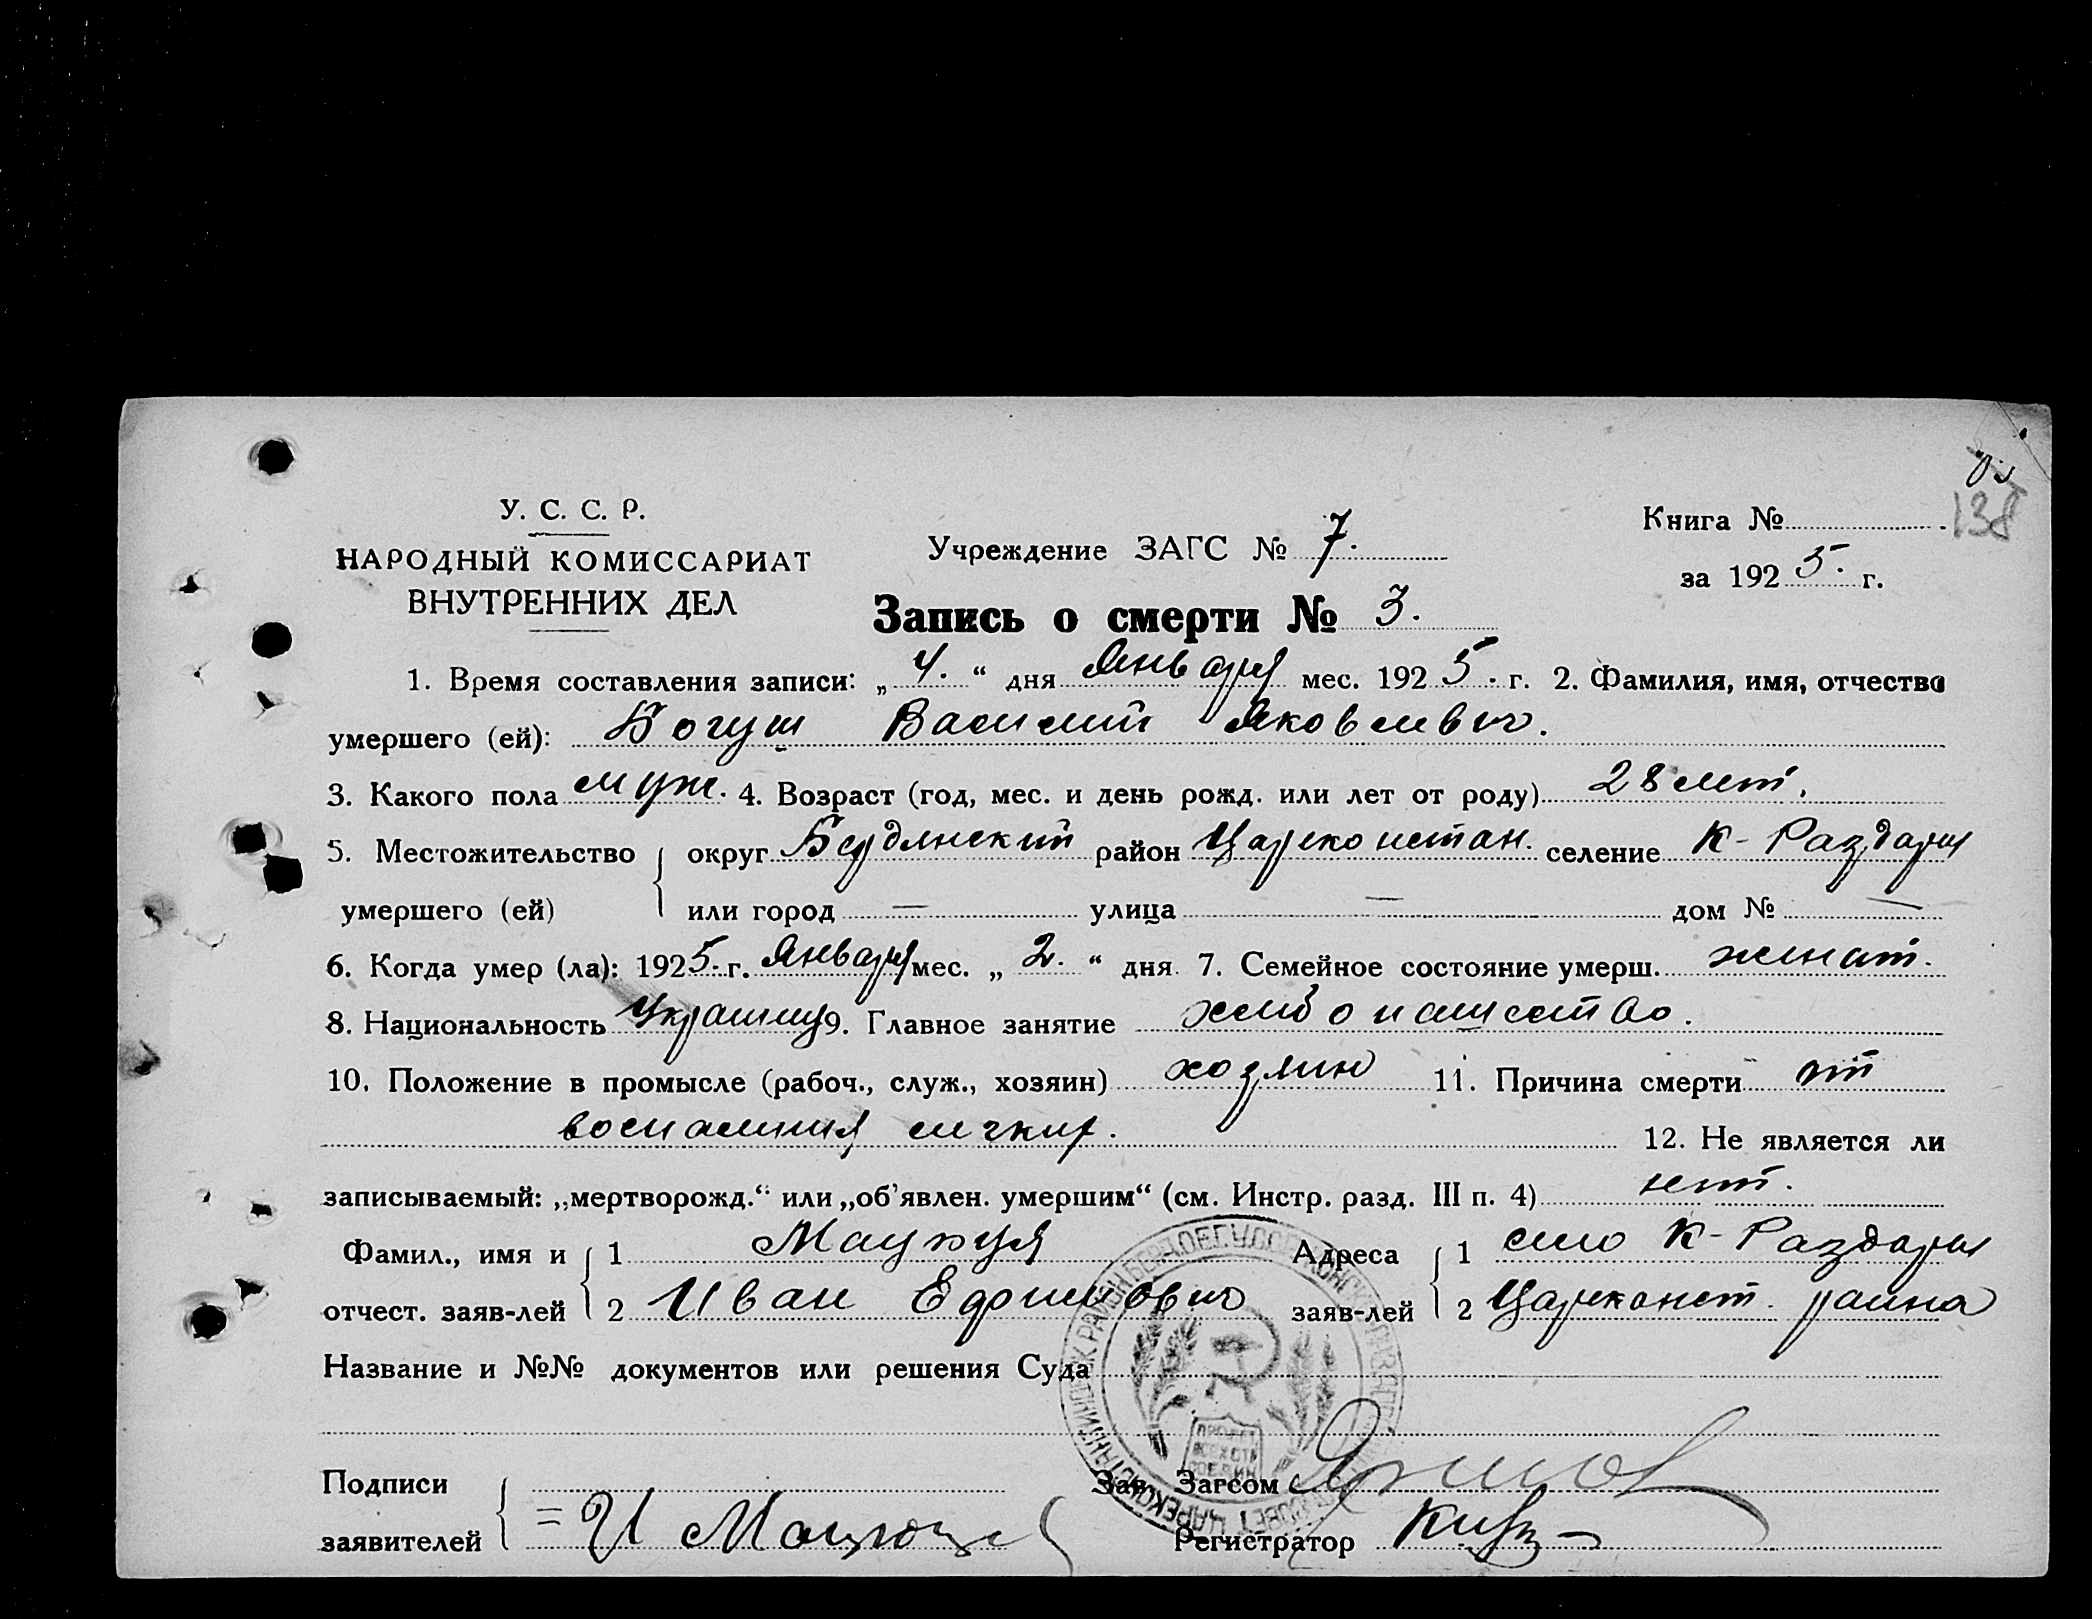 138
У. С. С. Р.
НАРОДНЫЙ КОМИССАРИАТ
ВНУТРЕННИХ ДЕЛ
Учреждение ЗАГС № 7.
Книга №
за 1925. г.
Запись о смерти № 3.
1. Время составления записи: „4.“ дня Января мес. 1925. г. 2. Фамилия, имя, отчество
умершего (ей): Богуш Василий Яковлевич.
3. Какого пола муж. 4. Возраст (год, мес. и день рожд. или лет от роду) 28 лет.
5. Местожительство округ Бердянский район Цареконстан. селение К-Раздоры
умершего (ей) или город — улица — дом № —
6. Когда умер (ла): 1925. г. Января мес. „2.“ дня. 7. Семейное состояние умерш. женат.
8. Национальность Украинец 9. Главное занятие хлебопашество.
10. Положение в промысле (рабоч., служ., хозяин) хозяин 11. Причина смерти от
воспаления легких. 12. Не является ли
записываемый: „мертворожд.“ или „об’явлен. умершим“ (см. Инстр. разд. III п. 4) нет.
Фамил., имя и 1 Адреса 1 село К-Раздоры
отчест. заяв-лей 2 Иван Ефимович заяв-лей 2 Цареконст. раина
Название и №№ документов или решения Суда
Подписи Зав. Загсом
заявителей И Регистратор